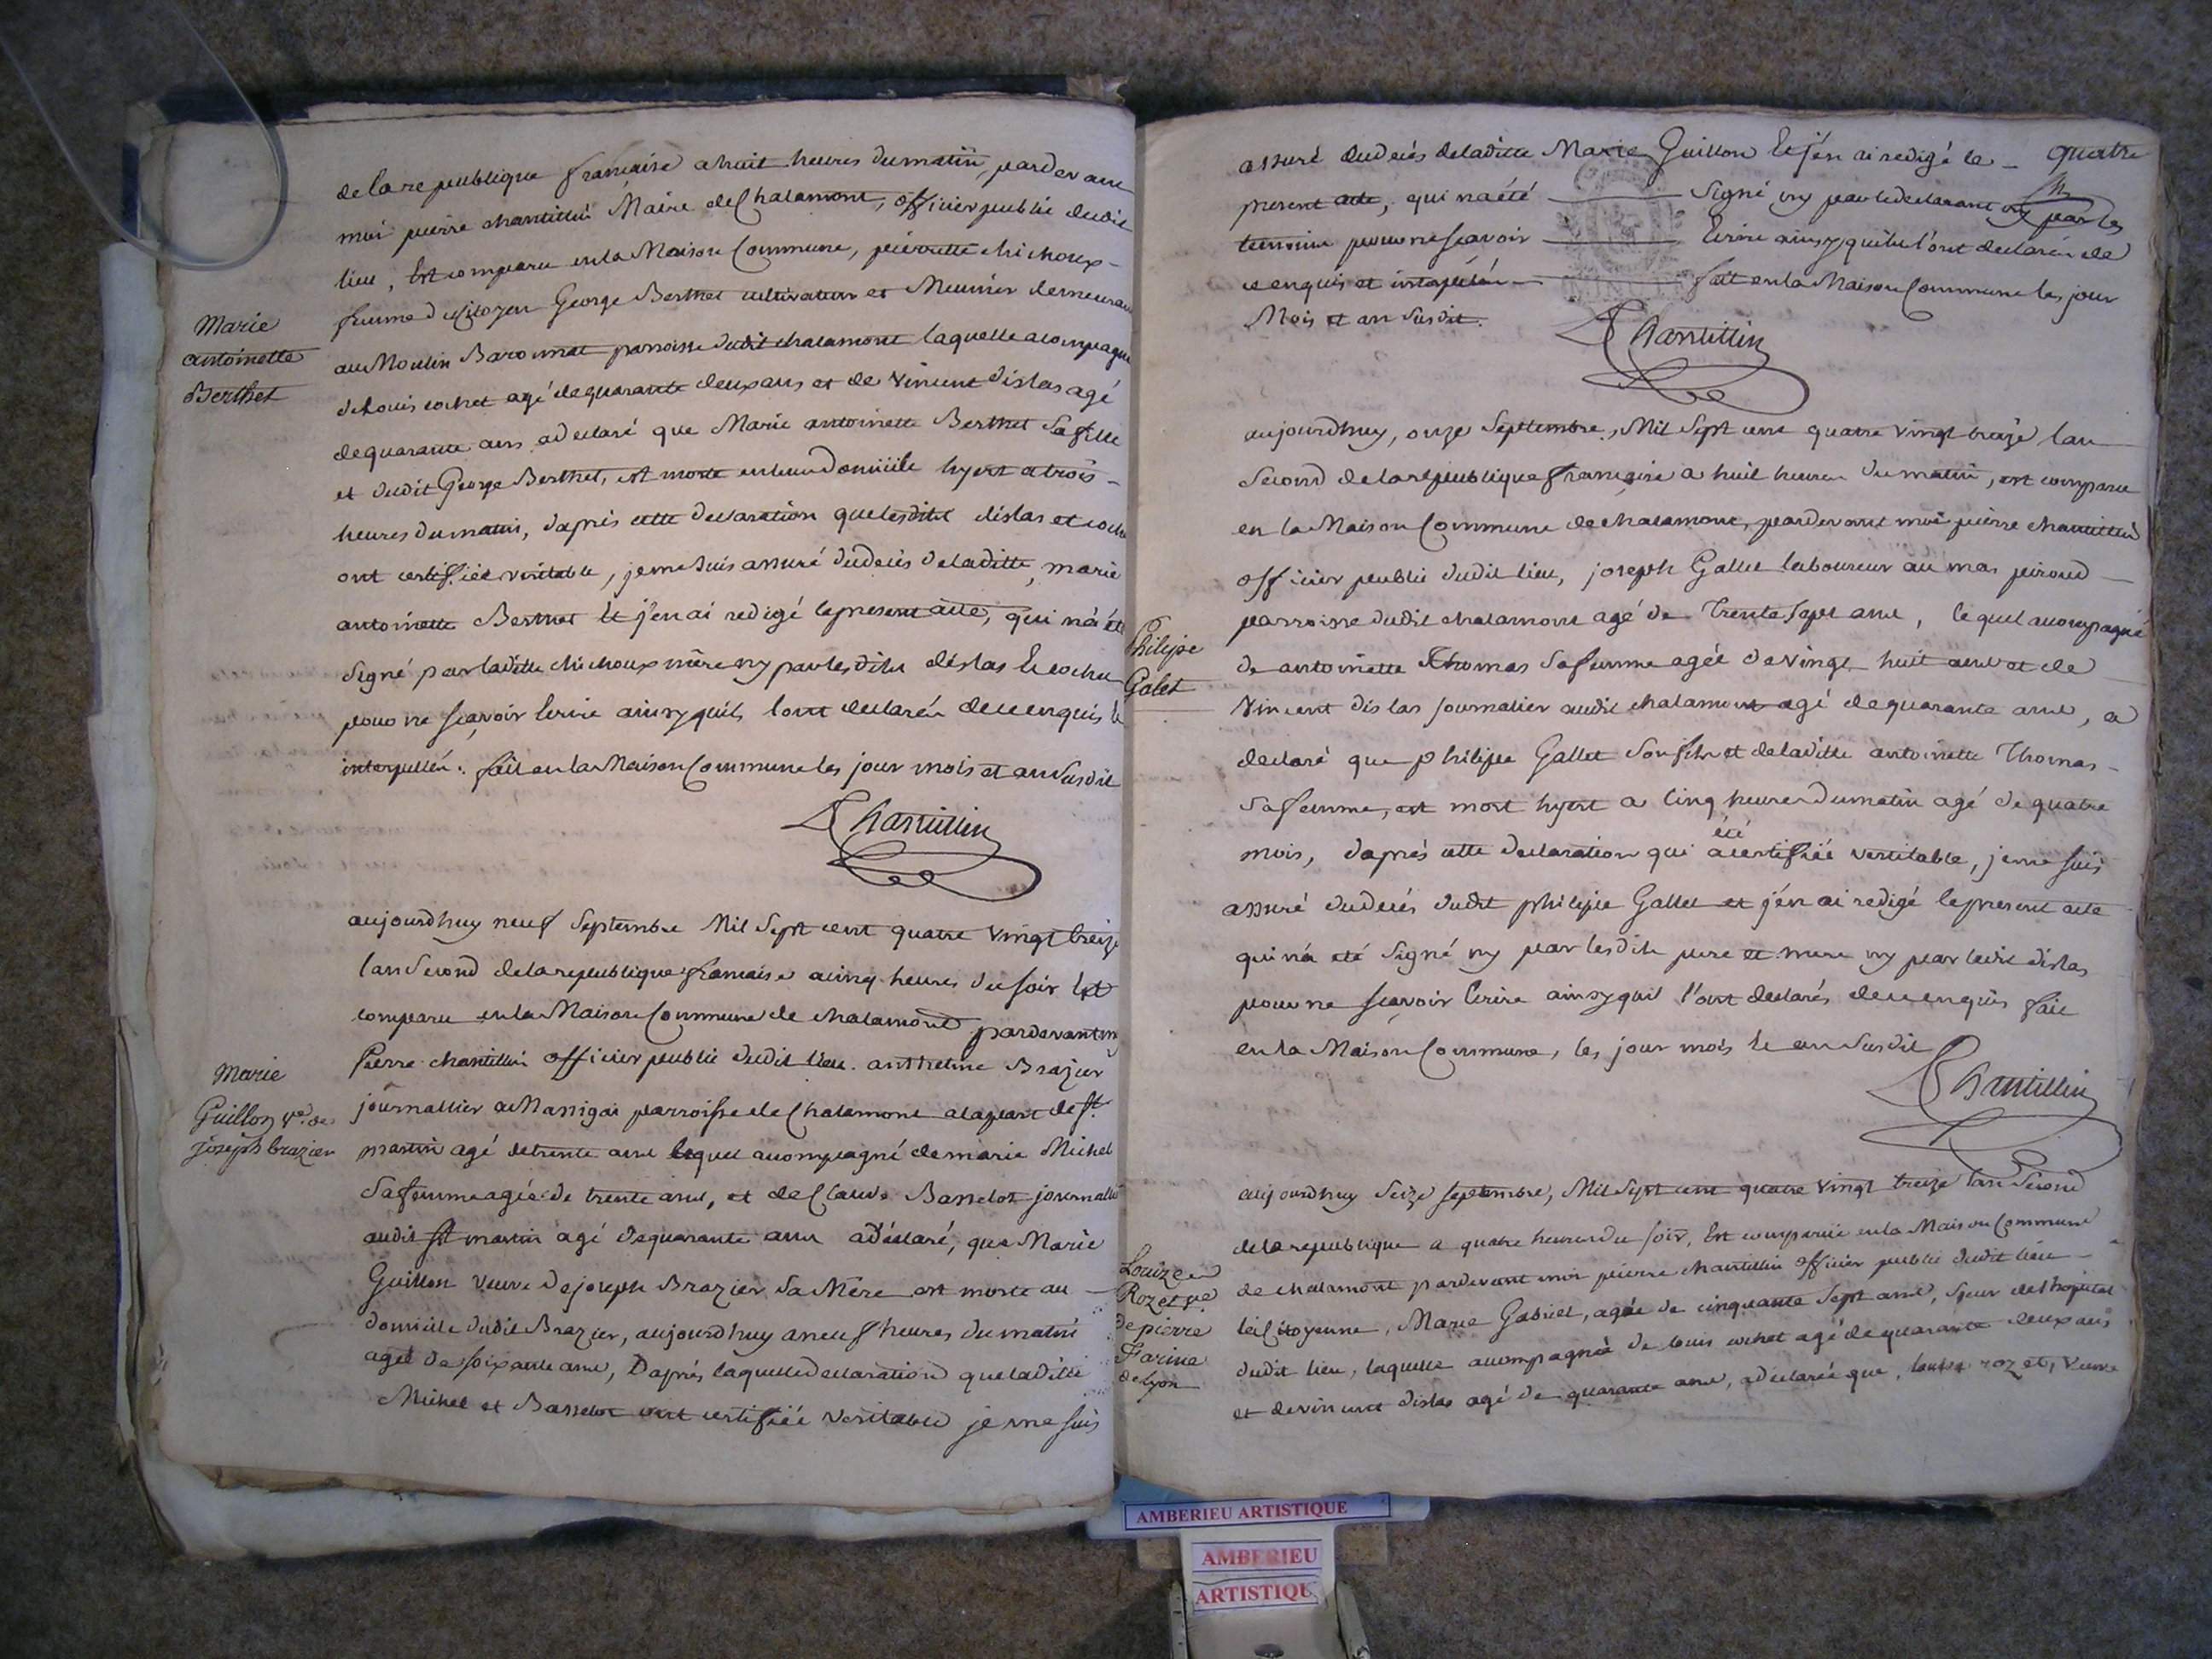 de la republique francaise a huit heures du matin, pardevant
moi pierre chantillin Maire de Chalamont, officier public dudit
lieu, Est comparu en la Maison Commune, pierrette chichoux
femme du Citoyen George Berthet cultivateur et Meunier demeurant
au Moulin Baronnat parroisse dudit chalamont laquelle acompagné
de Louis cochet agé de quarante deux ans et de Vincent dislas agé
de quarante ans a declaré que Marie antoinette Berthet Sa fille
et dudit George Berthet, est morte en leur Domicile hyert a trois
heures du matin, daprès cette declaration que lesdits dislas et coche
ont certifiée veritable, je me Suis assuré du decès de laditte, marie
antoinette Berthet Et j'en ai redigé le present acte, qui n'a été
Signé par laditte chichoux mère ny par lesdits dislas Et cochet
pour ne sçavoir Ecrire ainsy quils l'ont declarés de ce enquis Et
interpellés. fait en la Maison Commune les jour mois et an Susdit
Chantillin
Marie
antoinette
Berthet
aujourdhuy neuf Septembre Mil Sept cent quatre vingt treize
l'an Second de la republique francaise a cinq heures du soir Est
comparu en la Maison Commune de chalamont pardevant m
Pierre chantillin officier public dudit lieu. anthelme Brazier
journallier a Massigai parroisse de Chalamont a la part de St
martin agé de trente ans lequel acompagné de marie Michel
Sa femme agée de trente ans, et de Claude Basselot journallie
audit St martin agé de quarante ans a déclaré, que Marie
Guillon Veuve de joseph Brazier Sa Mère est morte au
domicile dudit Brazier, aujourdhuy a neuf heures du matin
ageé de soixante ans, Daprés laquelle declaration que laditte
Michel et Basselot ont certifiée veritable je me suis
Marie
Guillon ve. de
joseph brazier
quatre
assuré du decés de laditte Marie Guillon Et j'en ai redigé le
present acte, qui na été Signé ny par le declarant ny par les
temoins pour ne scavoir Ecrire ainsy quils l'ont declarés de
ce enquis et interpellés fait en la Maison Commune les jour
Mois et an Susdit.
Chantillin
aujourdhuy, onze Septtembre, Mil Sept cent quatre vingt treize l'an
Second de la republique francaise a huit heures du matin, est comparu
en la Maison Commune de chalamont, pardevant moi pierre chantillin
officier public dudit lieu, joseph Gallet laboureur au mas piroud
parroisse dudit chalamont agé de Trente Sept ans, lequel acompagné
de antoinette Thomas Sa femme agée de vingt huit ans et de
Vincent dislas journalier audit chalamont agé de quarante ans, a
declaré que philippe Gallet Son fils et de laditte antoinette Thomas
Sa femme, est mort hyert a Cinq heures du matin agé de quatre
mois, daprés cette declaration qui a été certifiée veritable, je me suis
assuré du decés dudit philippe Gallet et j'en ai redigé le present acte
qui n'a été Signé ny par lesdits pere et mere ny par ledit dislas
pour ne scavoir Ecrire ainsy quil l'ont declarés de ce enquis fait
en la Maison Commune, les jour mois Et an Susdit
Chantillin
Philipe
Galet
aujourdhuy Seize septembre, Mil Sept cent quatre vingt treize l'an Second
de la republique a quatre heures du soir, Est comparue en la Maison Commune
de chalamont pardevant moi pierre chantillin officier public dudit lieu
la Citoyenne, Marie Gabriel, agée de cinquante Sept ans, Sœur de l'hopital
dudit lieu, laquelle acompagnée de louis cochet agé de quarante deux ans
et de vincent dislas agé de quarante ans, a declarée que, rozet, veuve
Louize
Rozet ve.
de pierre
Farine
de lyon
AMBERIEU ARTISTIQUE
AMBERIEU
ARTISTIQU